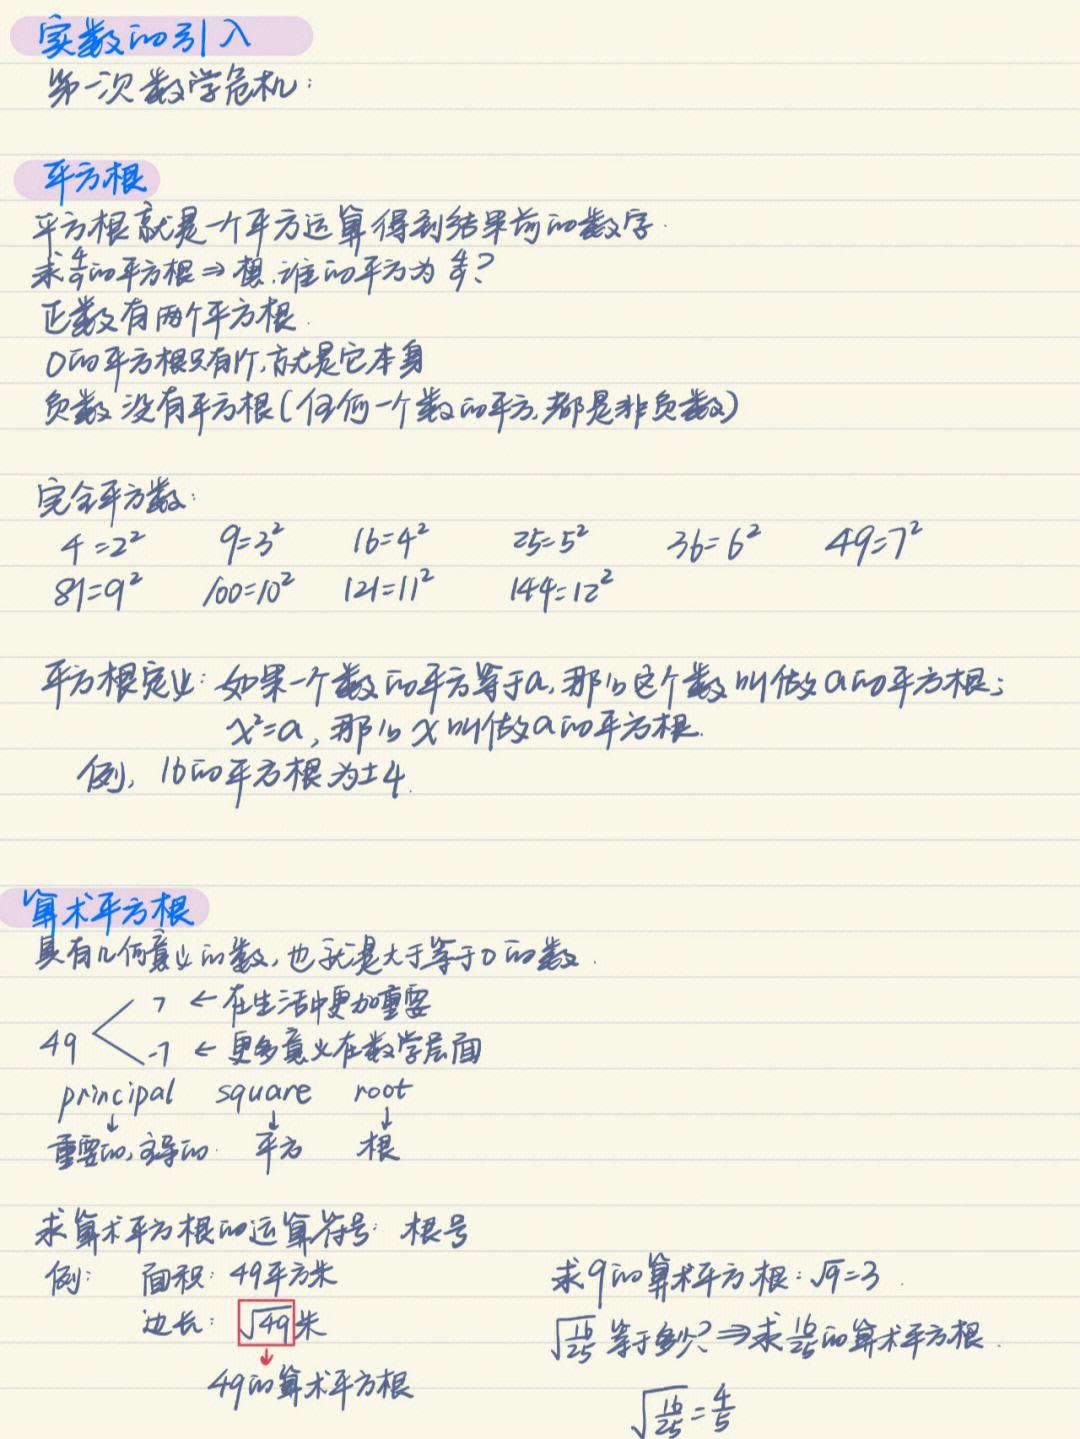 实数的引入
第一次数学危机：
平方根
平方根就是一个平方运算得到结果前的数字.
求4/9的平方根⇒想，谁的平方为4/9？
正数有两个平方根.
0的平方根只有1个，就是它本身
负数没有平方根(任何一个数的平方，都是非负数)
完全平方数：
4=2² 9=3² 16=4² 25=5² 36=6² 49=7²
81=9² 100=10² 121=11² 144=12²
平方根定义：如果一个数的平方等于a，那么这个数叫做a的平方根；
x²=a，那么x叫做a的平方根.
例，16的平方根为±4.
算术平方根
具有几何意义的数，也就是大于等于0的数.
7 ←在生活中更加重要
49
-7 ←更多意义在数学层面
principal square root
↓ ↓ ↓
重要的，主导的. 平方 根
求算术平方根的运算符号：根号
例： 面积：49平方米
边长：√49米
↓
49的算术平方根
求9的算术平方根：√9=3.
√16/25 等于多少？⇒求16/25的算术平方根.
√16/25=4/5